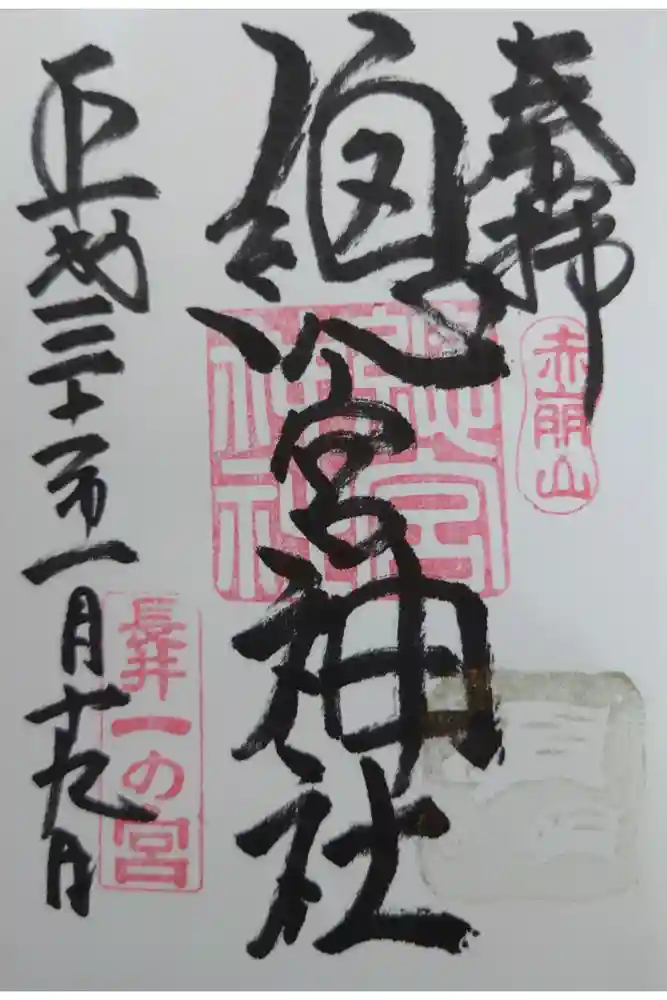 奉拝
赤崩山
總宮神社
總宮
神社
平成三十一年一月十九日
長井
一の宮